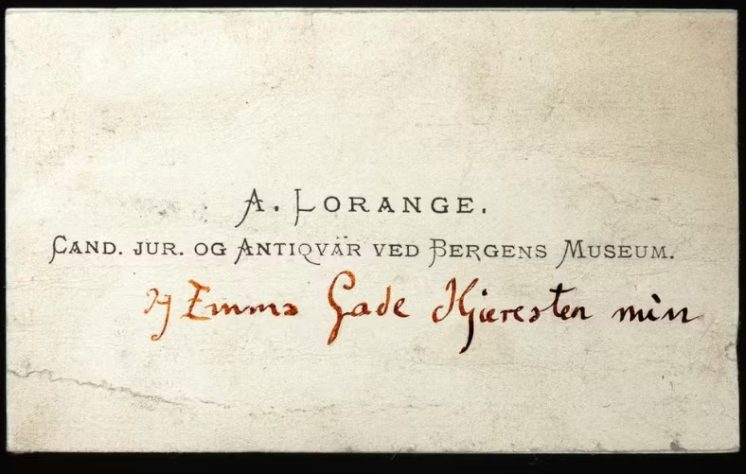 A. LORANGE.
CAND. JUR. OG ANTIQVÄR VED BERGENS MUSEUM.
og Emma Gade Hjieresten min